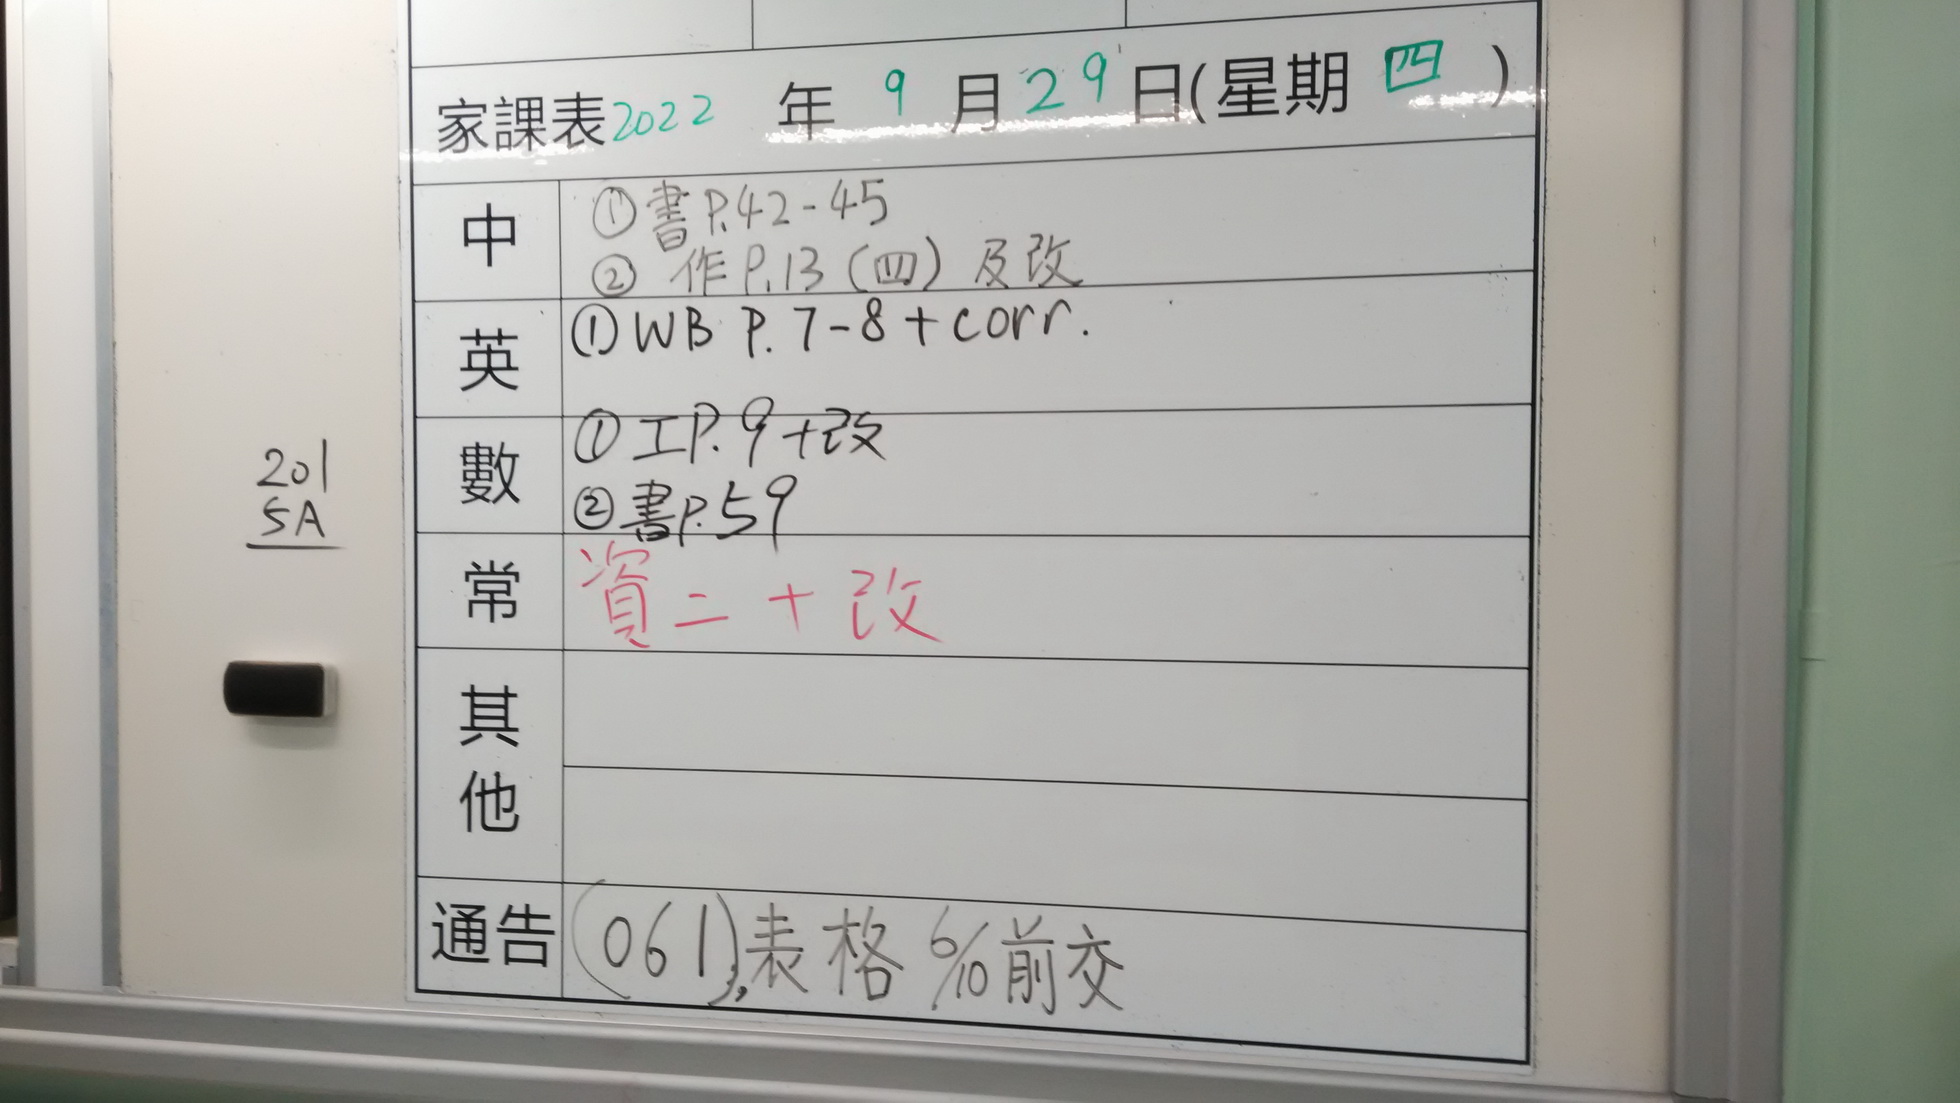 家課表2022 年 9 月 29 日(星期 四 )
中
①書P.42-45
② 作P.13 (四) 及改
英
①WB P. 7-8 + corr.
數
①工P. 9 +改
②書P.59
常
資二 + 改
其他
通告
(061),表格 6/10前交
201
5A